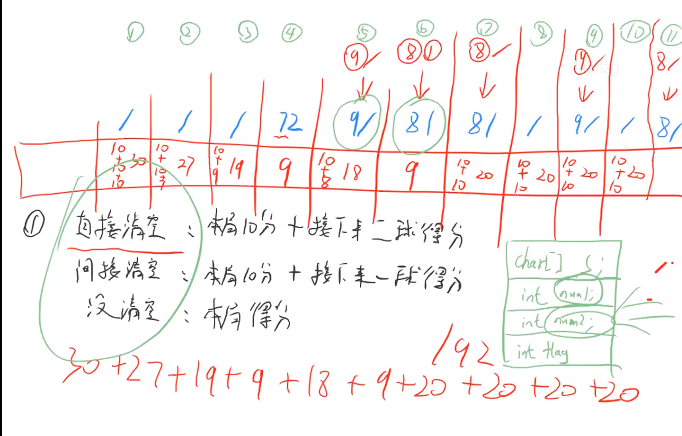 ① ② ③ ④ ⑤ ⑥ ⑦ ⑧ ⑨ ⑩ ⑪
9/ 8① 8/ 9/ 8/
/ / / 72 9/ 81 8/ / 9/ / 8/
10+10+10 30 10+10+7 27 10+9 19 9 10+8 18 9 10+10 20 10+10 20 10+10 20 10+10 20
① 直接清空：本局10分+接下来二球得分
间接清空：本局10分+接下来一球得分
没清空：本局得分
char[] s;
int num1;
int num2;
int flag
192
30+27+19+9+18+9+20+20+20+20